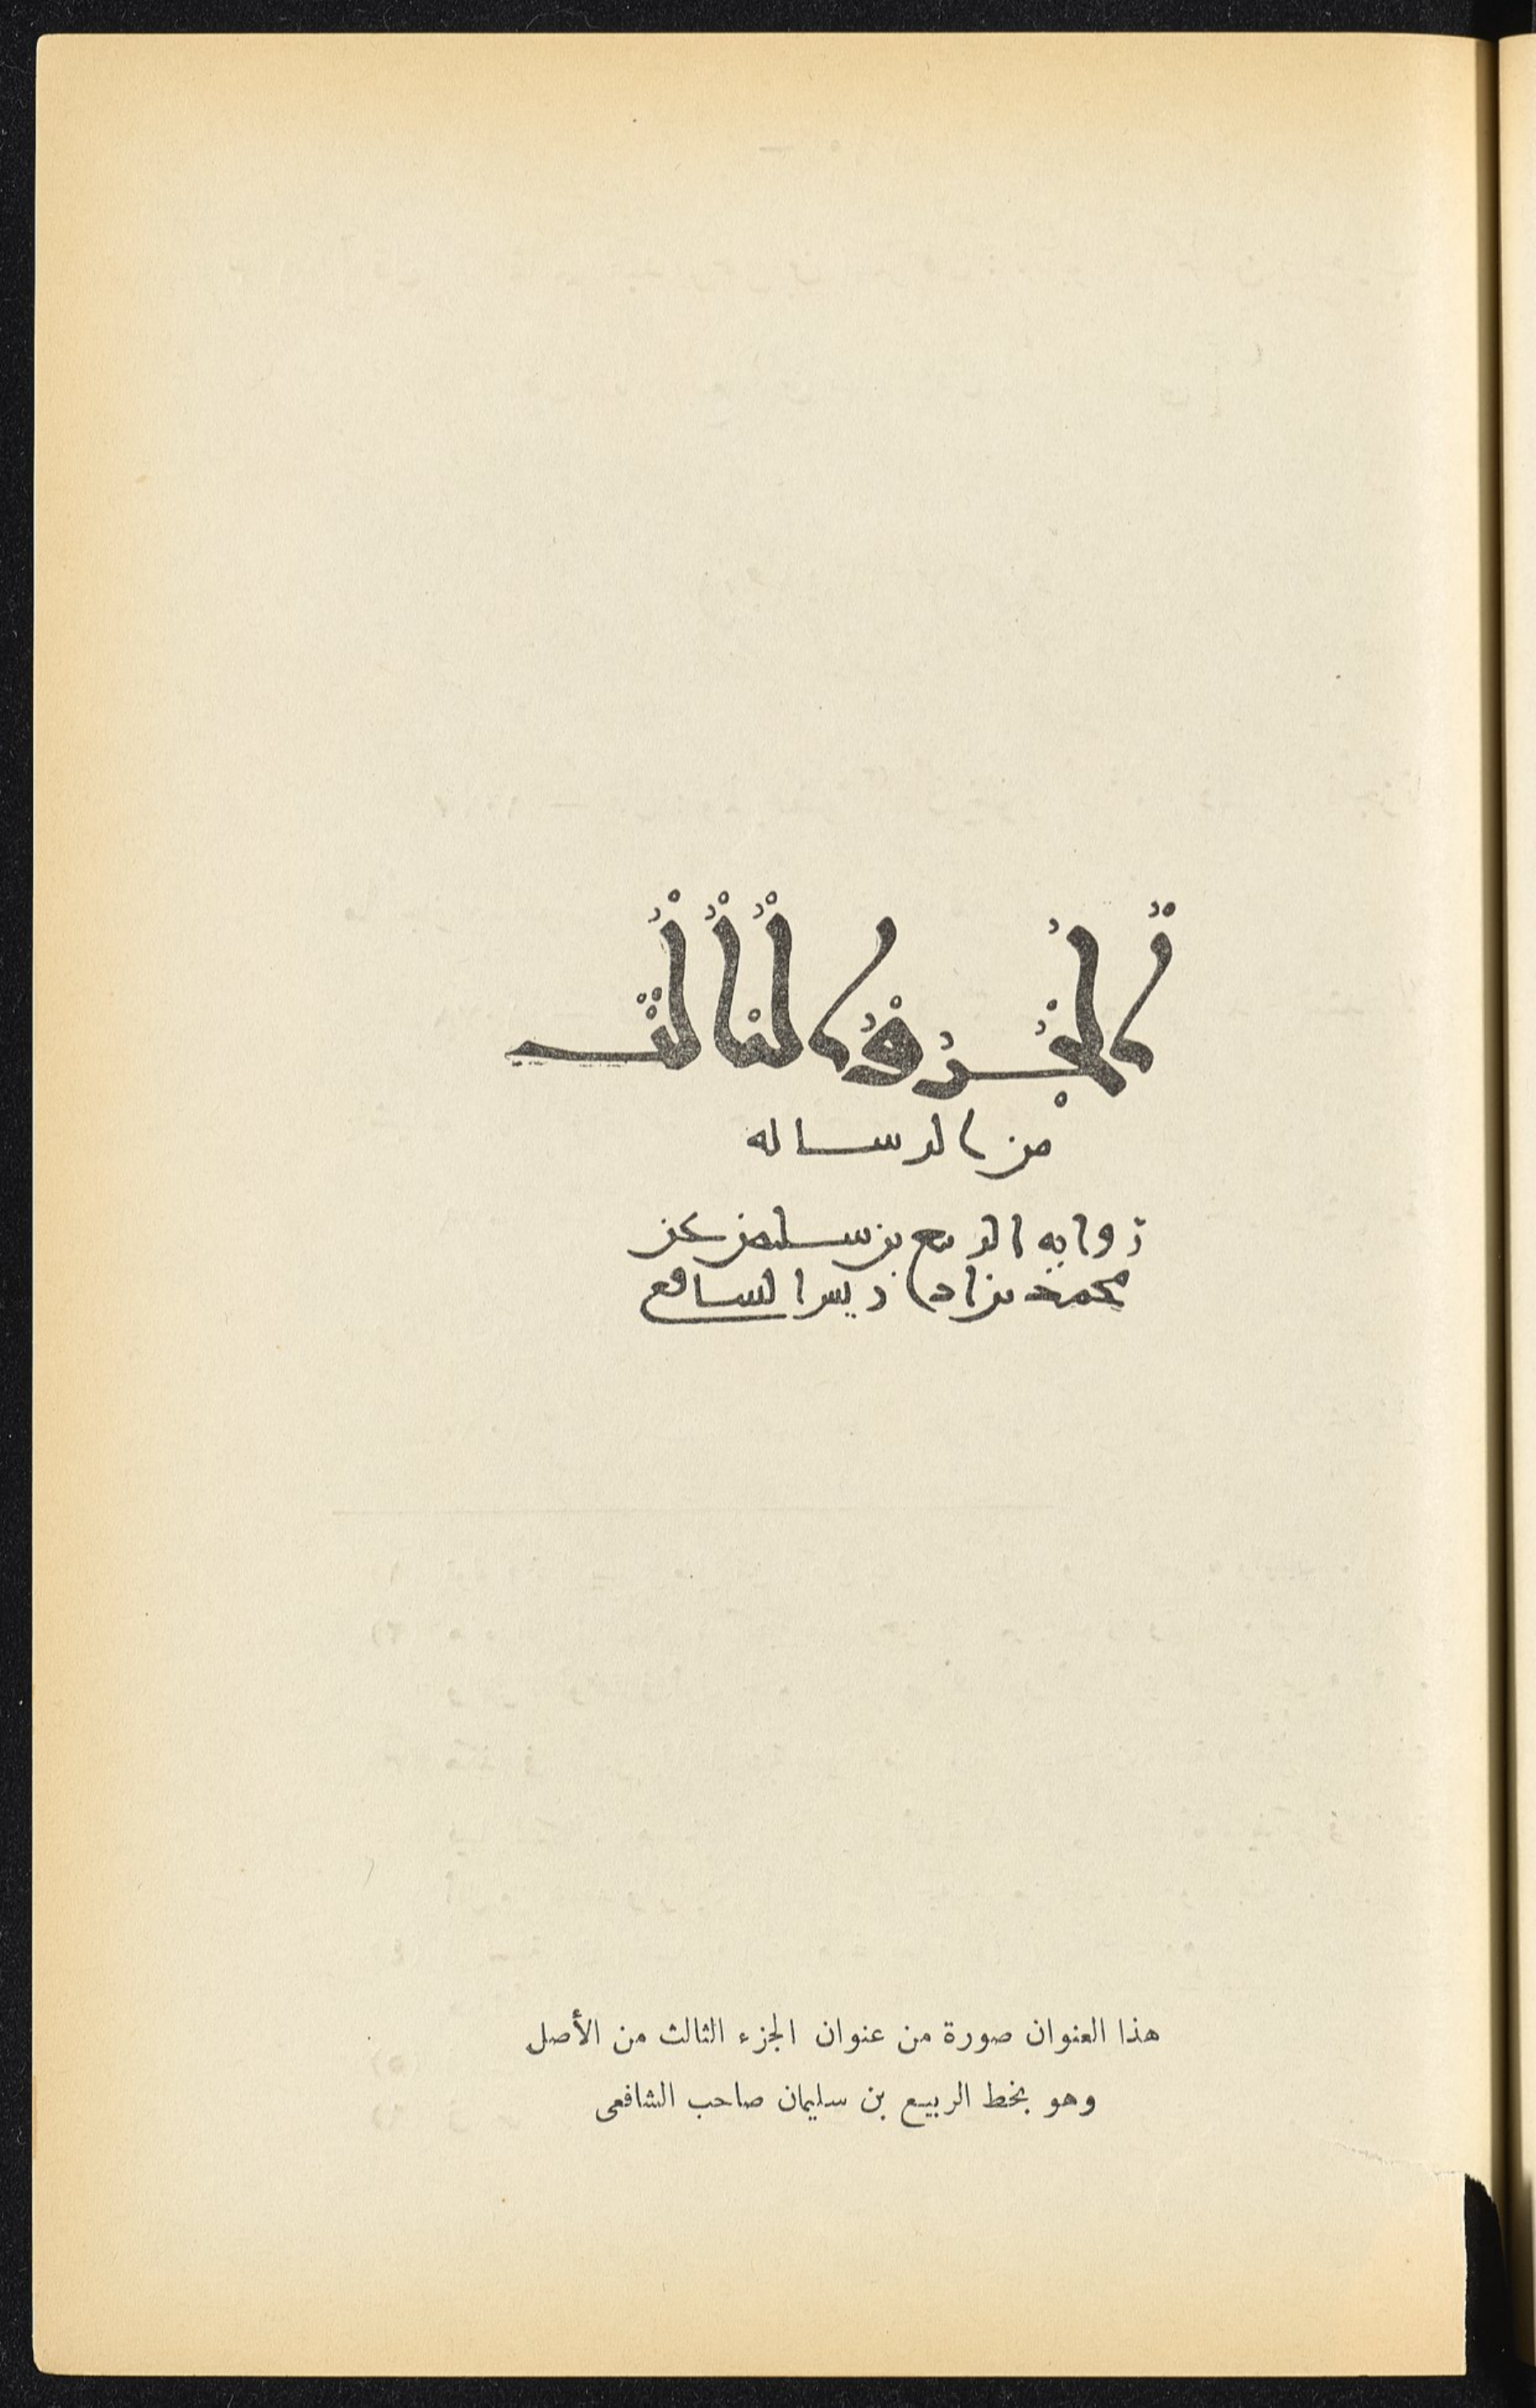 الجزو الثالث
من الرساله
روايه الربيع بن سليمن عن
محمد بن ادريس الشافعي
هذا العنوان صورة من عنوان الجزء الثالث من الأصل
وهو بخط الربيع بن سليمان صاحب الشافعى